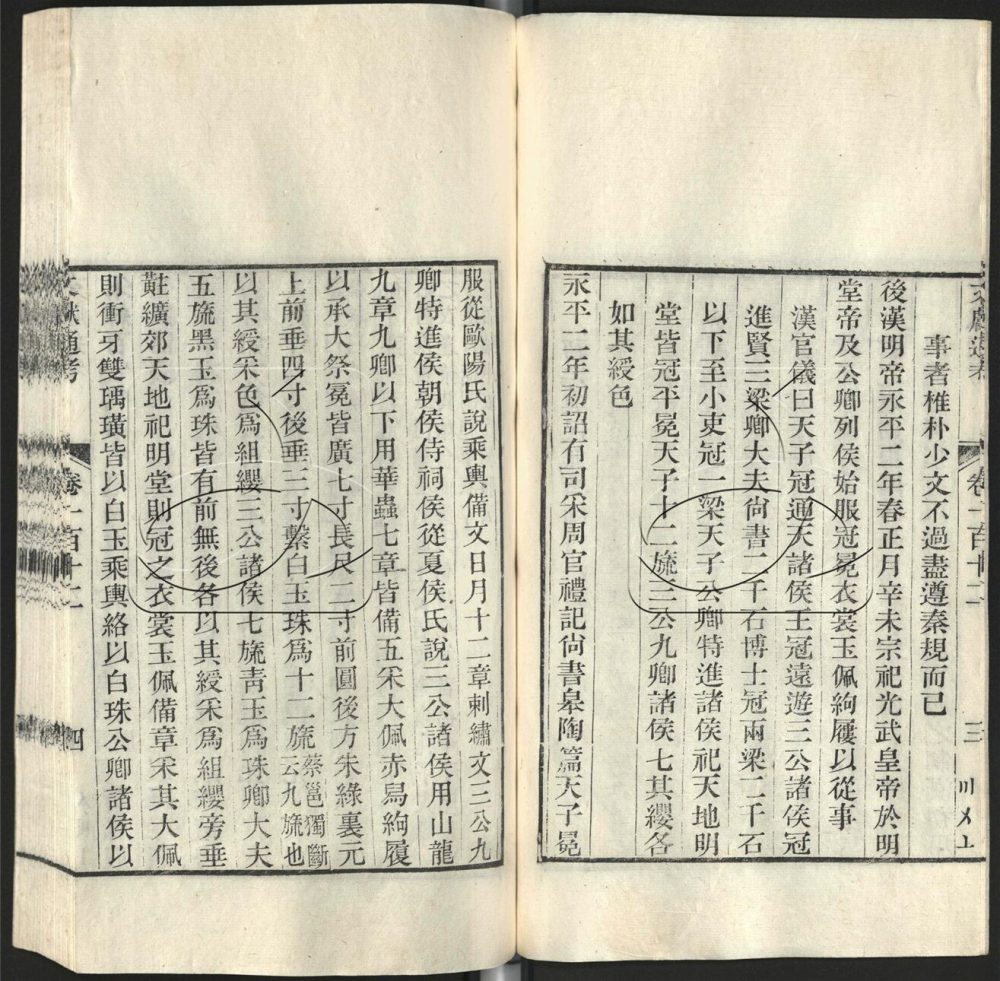 文獻通考
卷一百十二
三
事者椎朴少文不過盡遵秦規而已
後漢明帝永平二年春正月辛未宗祀光武皇帝於明
堂帝及公卿列侯始服冠冕衣裳玉佩絢屨以從事
漢官儀曰天子冠通天諸侯王冠遠遊三公諸侯冠
進賢三梁卿大夫尙書二千石博士冠兩梁二千石
以下至小吏冠一梁天子公卿特進諸侯祀天地明
堂皆冠平冕天子十二旒三公九卿諸侯七其纓各
如其綬色
永平二年初詔有司采周官禮記尙書皋陶篇天子冕
服從歐陽氏說乘輿備文日月十二章刺繡文三公九
卿特進侯朝侯侍祠侯從夏侯氏說三公諸侯用山龍
九章九卿以下用華蟲七章皆備五采大佩赤舄絢履
以承大祭冕皆廣七寸長尺二寸前圓後方朱綠裏元
上前垂四寸後垂三寸繫白玉珠爲十二旒蔡邕獨斷云九旒也
以其綬采色爲組纓三公諸侯七旒靑玉爲珠卿大夫
五旒黑玉爲珠皆有前無後各以其綬采爲組纓旁垂
黈纊郊天地祀明堂則冠之衣裳玉佩備章采其大佩
則衝牙雙瑀璜皆以白玉乘輿絡以白珠公卿諸侯以
文獻通考
卷一百十二
四